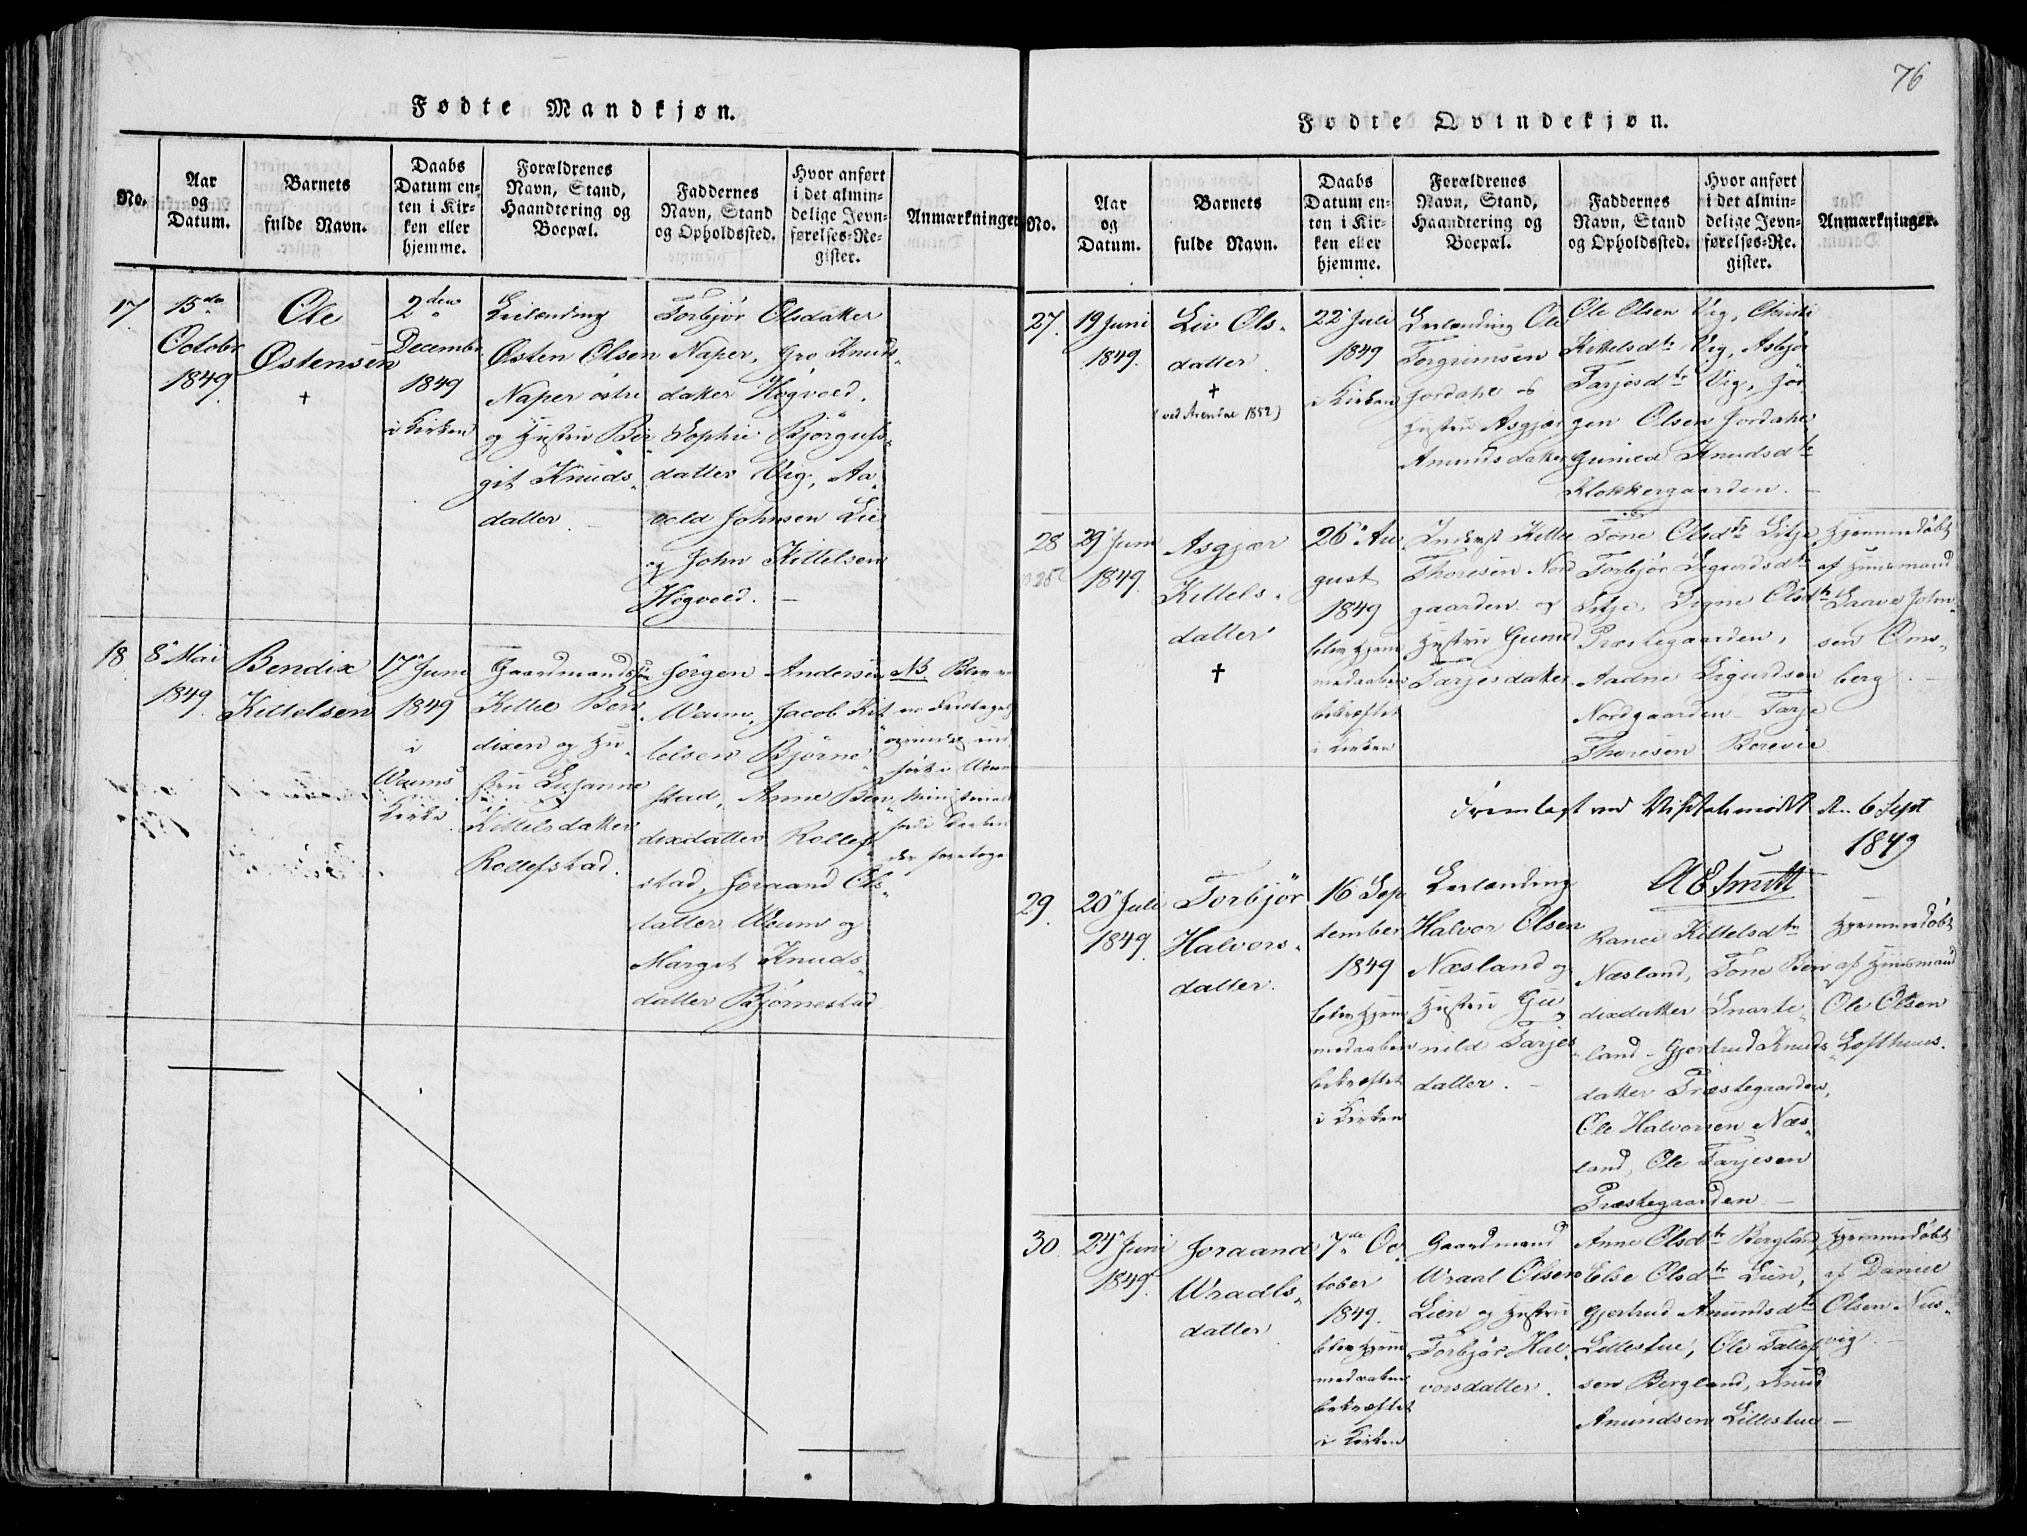 Fødte Mandkjøn.
No.
Aar
og
Datum.
Barnets
fulde Navn.
Daabs
Datum en-
ten i Kir-
ken eller
hjemme.
Forældrenes
Navn, Stand,
Haandtering og
Boepæl.
Faddernes
Navn, Stand
og Opholdssted.
Hvor anført
i det almin-
delige Jevn-
førelses-Re-
gister.
Anmærkninger
17.
15de
Octobr
1849.
Ole
Østensen
+
2den
Decembr
1849
i Kirken
Leilænding
Østen Olsen
Naper östre
og Hustru Bir
git Knuds-
datter.
Torbjör Olsdatter
Naper, Gro Knuds-
datter Högvold,
Sophie Björgufs-
datter Vig, Aa-
vold Johnsen Lie
og John Kittelsen
Högvold. —
18
8 Mai
1849.
Bendix
Kittelsen
17 Juni
1849
i
Waums
Kirke
Gaardmand
Kittel Ben
dixen og Hu-
stru Susanne
Kittelsdatter
Rollefstad.
Jörgen Andersen
Waum, Jacob Kit
telsen Björne-
stad, Anne Ben-
dixdatter Rollef-
stad, Joraand Ols-
datter Waum og
Marget Knuds-
datter Björnestad
NB. Blev
76
Fødte Qvindekjøn.
No.
Aar
og
Datum.
Barnets
fulde Navn.
Daabs
Datum en-
ten i Kir-
ken eller
hjemme.
Forældrenes
Navn, Stand,
Haandtering og
Boepæl.
Faddernes
Navn, Stand
og Opholdssted.
Hvor anført
i det almin-
delige Jevn-
førelses-Re-
gister.
Anmærkninger.
27.
19 Juni
1849.
Liv Ols-
datter
+
(ved Arendal 1852)
22 Juli
1849
i Kirken
Leilænding Ole
Torgrimsen
Jordahl og
Hustru Asgjær
Anundsdatter
Ole Olsen Vig, Christi
Kittelsdtr Vig, Asbjör
Tarjesdtr Vig, Jör
gen Olsen Jordahl
Guned Knudsdtr
Klokkergaarden. —
28
29 Juni
1849.
Asgjær
Kittels-
datter
+
26 Au
gust
1849
blev Hjem
medaaben
bekræftet
i Kirken
Inderst Kittel
Thoresen Nord
gaarden og
Hustru Guned
Tarjesdatter
Tone Olsdtr Litje
Torbjör Sigurdsdtr
Litje, Signe Olsdtr
Præstegaarden,
Aadne Sigurdsen
Nordgaarden Tarje
Thoresen
Hjemmedöbt
af Huusmand
Saave John-
sen Oms-
berg. —
Fremlagt ved Visitatsmödet den 6 Sept
1849
29.
20 Juli
1849.
Torbjör
Halvors-
datter.
16 Sep
tember
1849
blev Hjem
medaaben
bekræftet
i Kirken
Leilænding
Halvor Olsen
Næsland og
Hustru Gu-
nild Tarjes
datter. —
Ranei Kittelsdtr
Næsland, Tone Ben
dixdatter Snarte-
land, Gjertrud Knuds
datter Præstegaarden,
Ole Halvorsen Næs-
land, Ole Tarjesen
Præstegaarden —
Hjemmedöbt
af Huusmand
Ole Olsen
Lofthuus.
30
24 Juni
1849.
Joraand
Wraals-
datter
7de Oc-
tober
1849.
blev Hjem
medaaben
bekræftet
i Kirken
Gaardmand
Wraal Olsen
Lien og Hustru
Torbjör Hal-
vorsdatter.
Anne Olsdtr Bergland
Else Olsdtr Lien,
Gjertrud Anundsdtr
Lillestue, Ole Tallef
sen Bergland, Knud
Anundsen Lillestue —
Hjemmedöbt
af Daniel
Olsen Nus-
vig. —